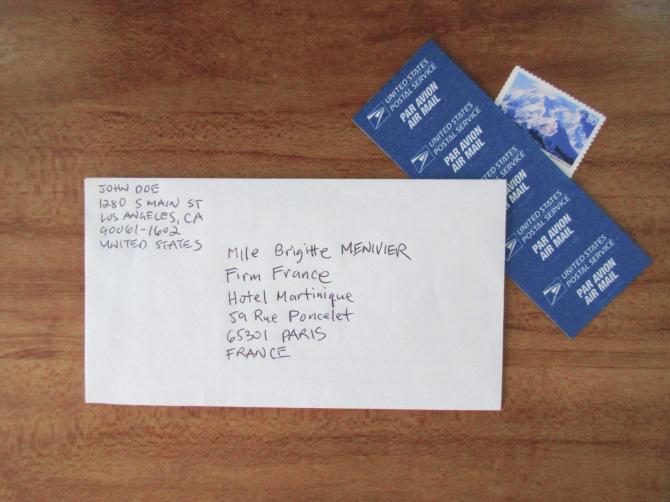 JOHN DOE
1280 S MAIN ST
LOS ANGELES, CA
90061-1602
UNITED STATES
Mlle Brigitte MENIVIER
Firm France
Hotel Martinique
59 Rue Poncelet
65301 PARIS
FRANCE
UNITED STATES
POSTAL SERVICE
PAR AVION
AIR MAIL
UNITED STATES
POSTAL SERVICE
PAR AVION
AIR MAIL
STATES
SERVICE
PAR AVION
AIR MAIL
UNITED STATES
POSTAL SERVICE
PAR AVION
AIR MAIL
UNITED STATES
POSTAL SERVICE
PAR AVION
AIR MAIL